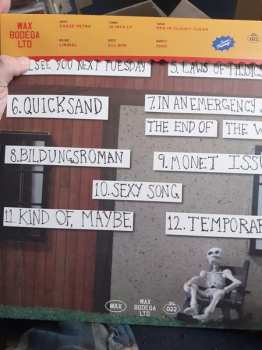 WAX
BODEGA
LTD
I SEE YOU NEXT TUESDAY
5. LAWS OF
6. QUICKSAND
7. IN AN EMERGENCY
THE END OF
THE W
8. BILDUNGSROMAN
9. MONET ISS
10. SEXY SONG
11. KIND OF, MAYBE
12. TEMPORAR
WAX
WAX
BODEGA
LTD
022